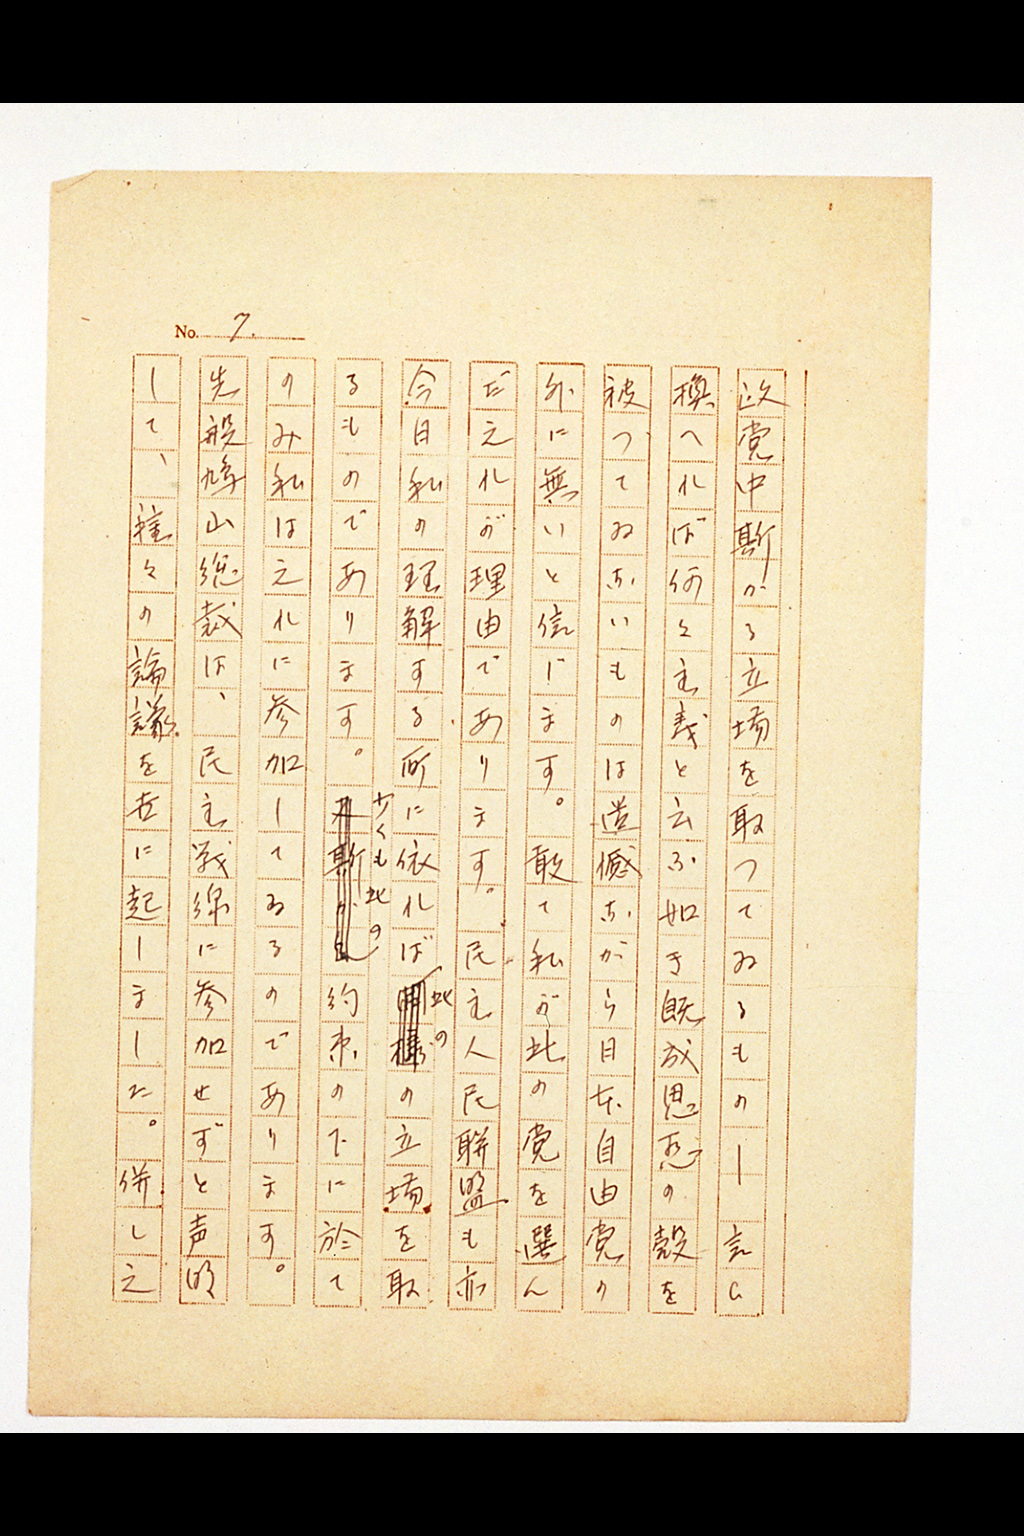 No. 7.
政党中斯かる立場を取つてゐるものー言ひ
換へれば何々主義と云ふ如き既成思想の殻を
被つてゐないものは遺憾ながら日本自由党の
外に無いと信じます。敢て私が此の党を選ん
だ之れが理由であります。民主人民聯盟も亦
今日私の理解する所に依れば此のの立場を取
るものであります。少くも此の約束の下に於て
のみ私は之れに参加してゐるのであります。
先般鳩山総裁は、民主戦線に参加せずと声明
して、種々の論議を世に起しました。併し之